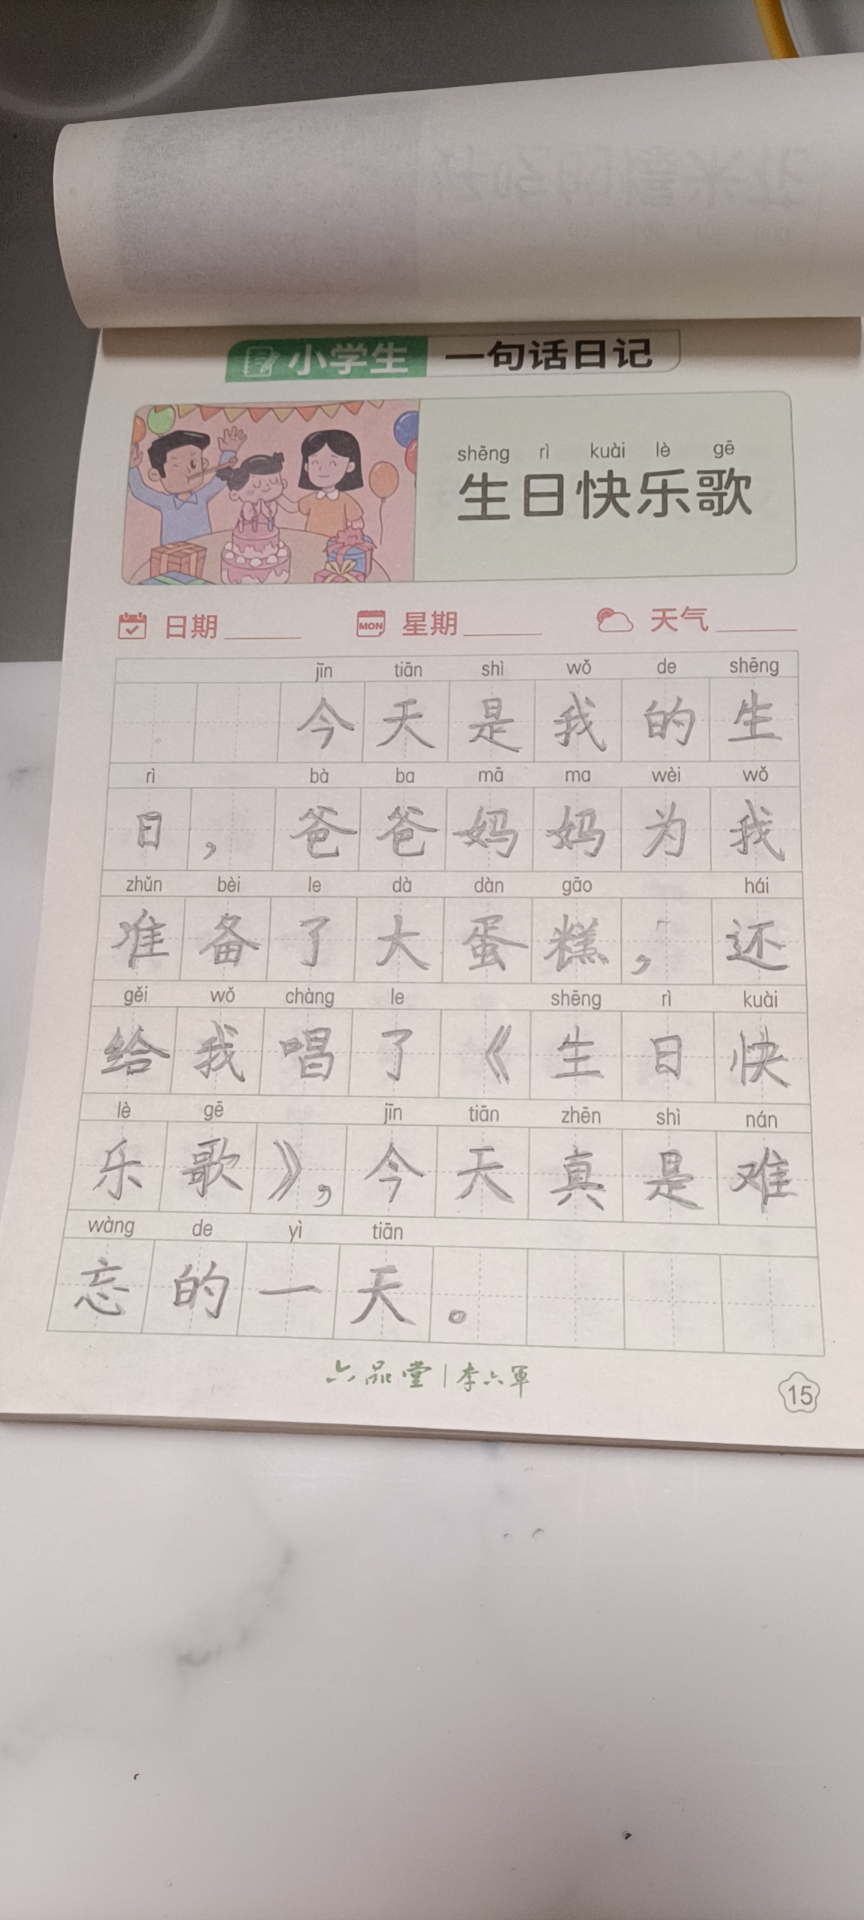 小学生 一句话日记
shēng rì kuài lè gē
生日快乐歌
日期 星期 天气
MON
jīn tiān shì wǒ de shēng
今天是我的生
rì bà ba mā ma wèi wǒ
日，爸爸妈妈为我
zhǔn bèi le dà dàn gāo hái
准备了大蛋糕，还
gěi wǒ chàng le shēng rì kuài
给我唱了《生日快
lè gē jīn tiān zhēn shì nán
乐歌》，今天真是难
wàng de yì tiān
忘的一天。
六品堂 | 李六军
15